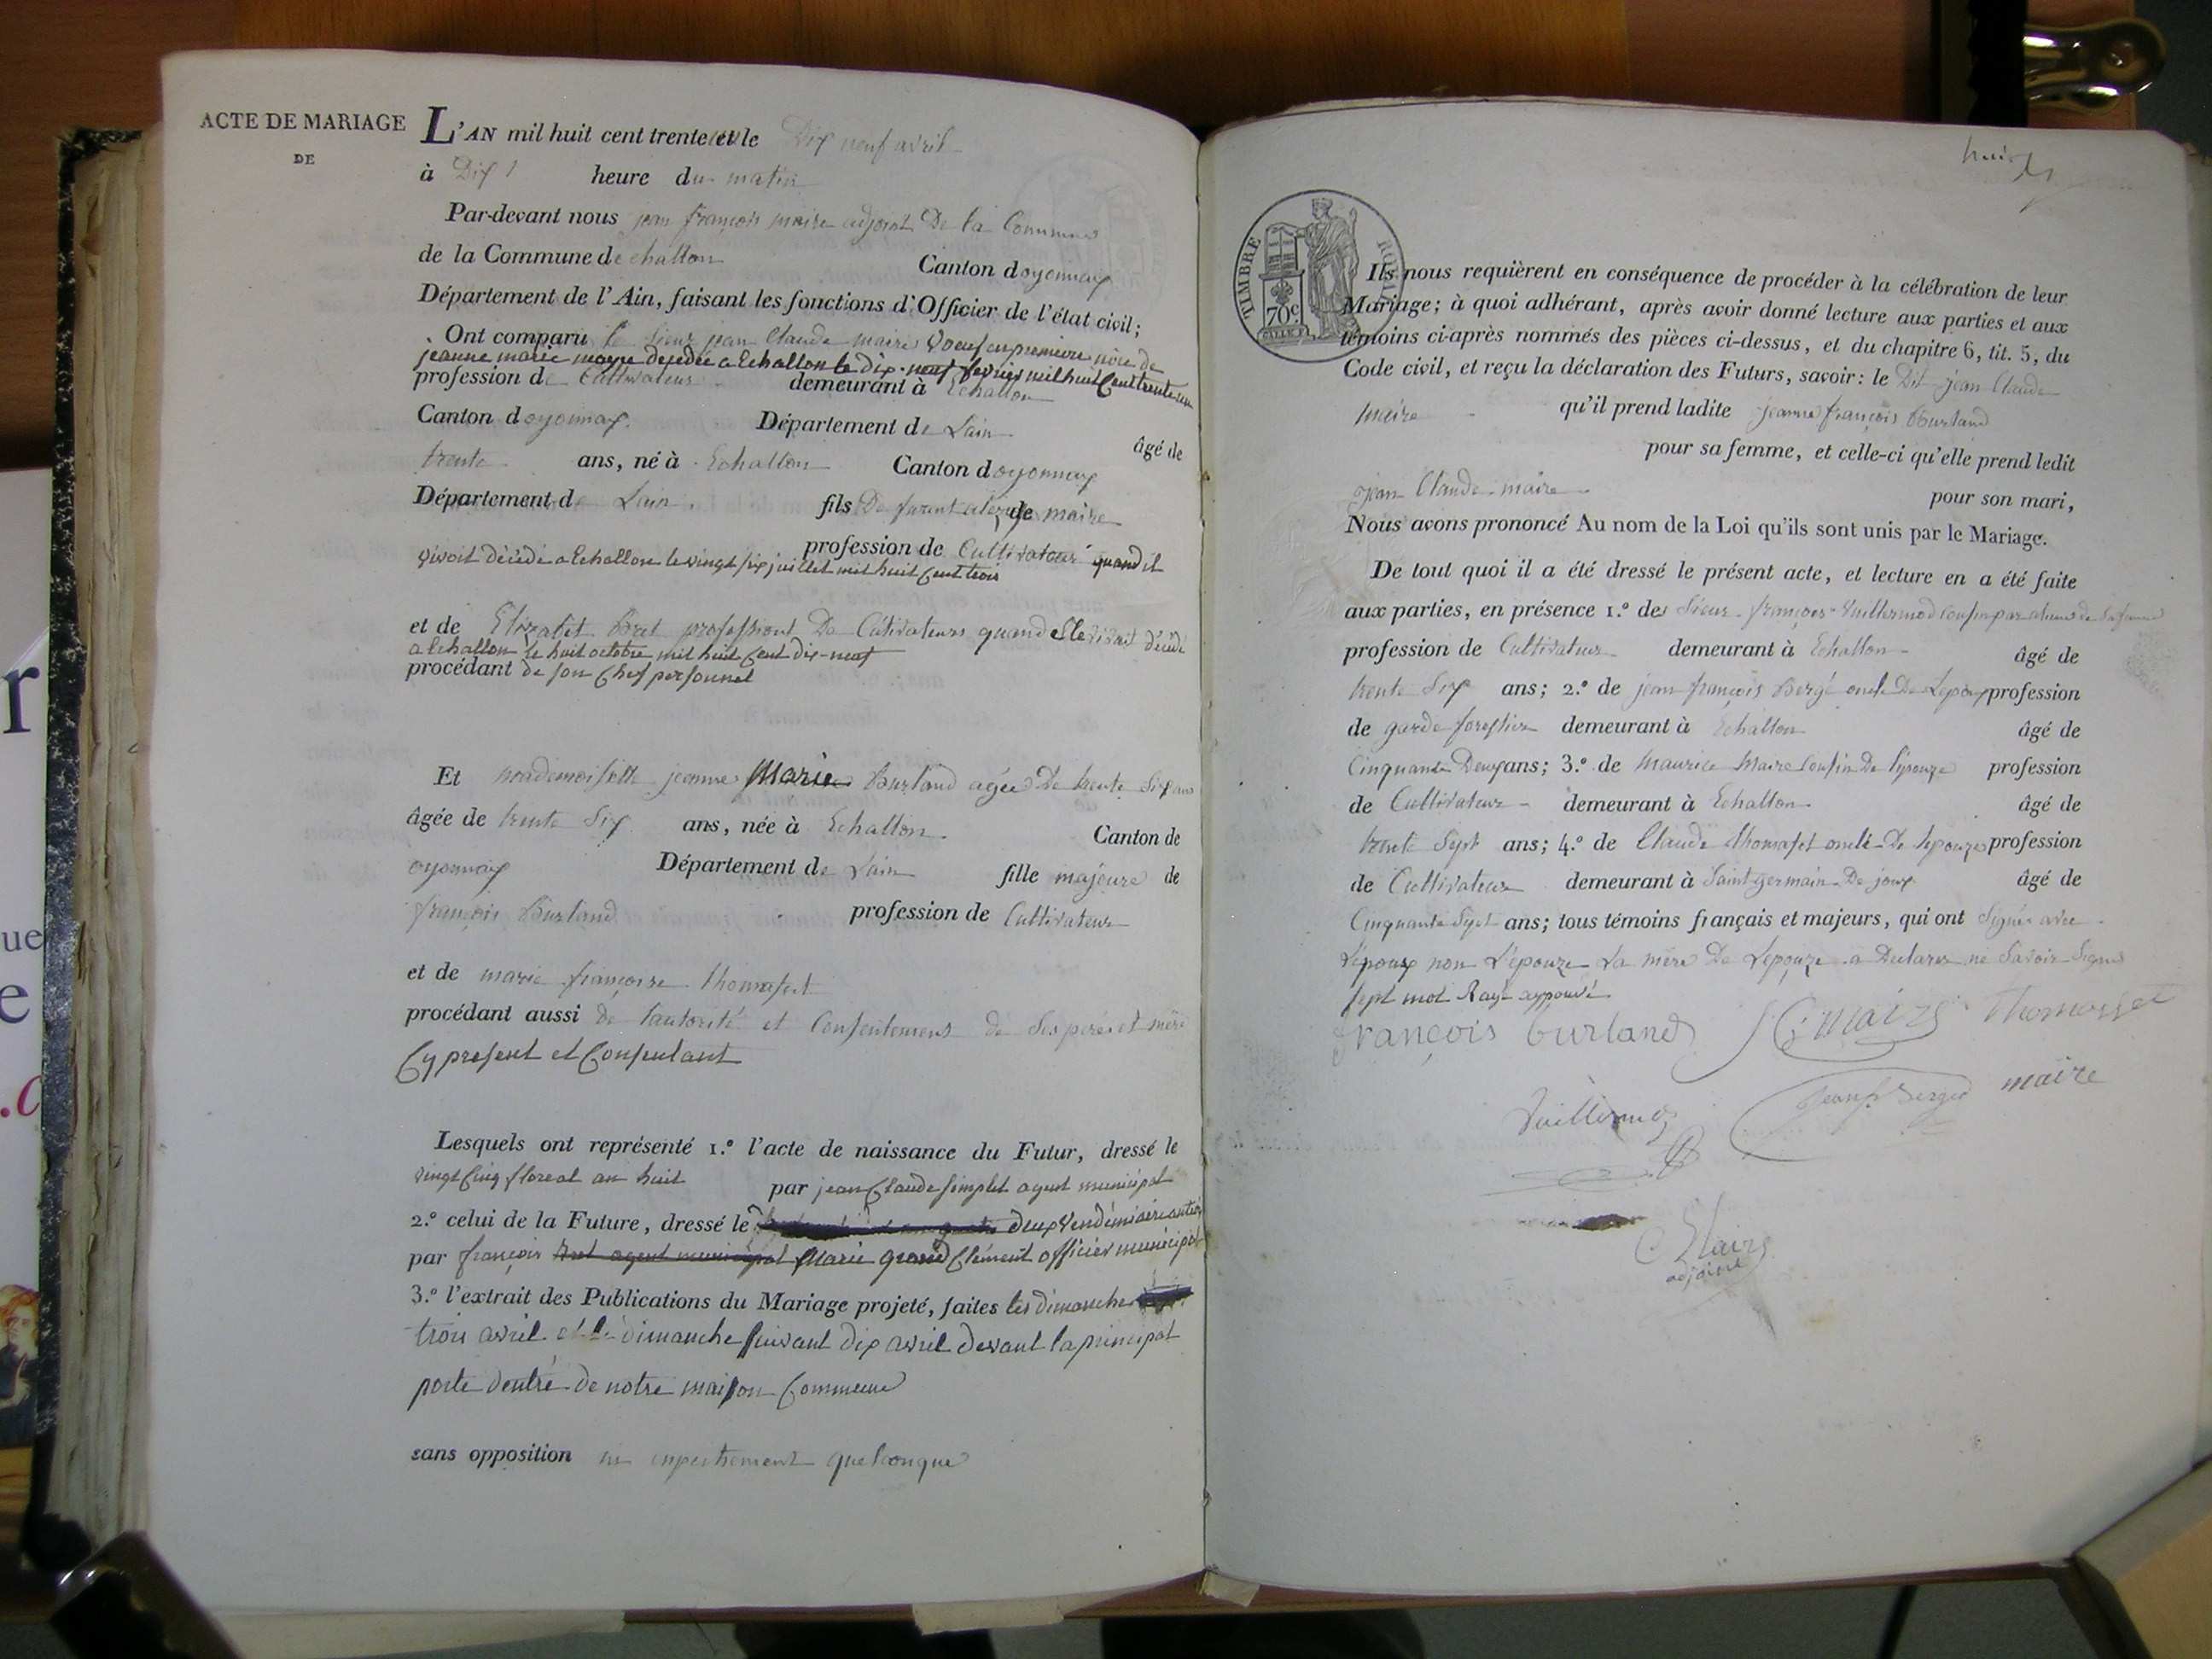 ACTE DE MARIAGE
DE
L'AN mil huit cent trente et un le Dix neuf avril
à Dix heure du matin
Par-devant nous jean françois maire adjoint De la Commune
de la Commune dechallon Canton doyonnax
Département de l'Ain, faisant les fonctions d'Officier de l'état civil;
Ont comparu le Sieur jean Claude maire Voeuf en premiere nôce de
jeanne marie moyne decedée a Echallon le dix-neuf fevrier mil huit Cent trente un
profession de Cultivateur demeurant à Echallon
Canton doyonnax Département de Lain âgé de
trente ans, né à Echallon Canton doyonnax
Département de Lain fils De furent de maire
profession de Cultivateur quand il
vivoit décédé a Echallon le vingt six juillet mil huit Cent trois
et de Elizabet Bret professiont De Cultivateurs quand Elle vivait décédé
a Echallon le huit octobre mil huit Cent dix-neuf
procédant de son Chef personnel
Et mademoiselle jeanne Marie Burland agée De trente Six ans
âgée de trente Six ans, née à Echallon Canton de
oyonnax Département de Lain fille majeure de
françois Burland profession de Cultivateur
et de marie françoise thomasset
procédant aussi de l'autorité et Consentement de Ses père et mère
Cy present et Consentant
Lesquels ont représenté 1.º l'acte de naissance du Futur, dressé le
vingt Cinq floreal an huit par jean Claude Simplet agent municipal
2.º celui de la Future, dressé le deux Vendémiaire an trois
par françois Bret agent municipal Marie grand Clément officier municipal
3.º l'extrait des Publications du Mariage projeté, faites les dimanche
trois avril et le dimanche suivant dix avril devant la principal
porte dentré de notre maison Commune
sans opposition ni empechement quelconque
TIMBRE ROYAL
70c
Ils nous requièrent en conséquence de procéder à la célébration de leur
Mariage; à quoi adhérant, après avoir donné lecture aux parties et aux
témoins ci-après nommés des pièces ci-dessus, et du chapitre 6, tit. 5, du
Code civil, et reçu la déclaration des Futurs, savoir: le Dit jean Claude
maire qu'il prend ladite jeanne françois Burland
pour sa femme, et celle-ci qu'elle prend ledit
jean Claude maire pour son mari,
Nous avons prononcé Au nom de la Loi qu'ils sont unis par le Mariage.
De tout quoi il a été dressé le présent acte, et lecture en a été faite
aux parties, en présence 1.º de Sieur françois Vuillermod Cousin par de Sa femme
profession de Cultivateur demeurant à Echallon âgé de
trente Six ans; 2.º de jean françois Bergé oncle De Lepoux profession
de garde forestier demeurant à Echallon âgé de
Cinquante Deux ans; 3.º de Maurice Maire Cousin De lepouze profession
de Cultivateur demeurant à Echallon âgé de
trente Sept ans; 4.º de Claude thomasset oncle De lepouze profession
de Cultivateur demeurant à Saint germain De joux âgé de
Cinquante Sept ans; tous témoins français et majeurs, qui ont Signés avec
L'époux non L'épouze La mère De Lepouze a Declarer ne Savoir Signer
sept mot Rayé approuvé
françois burland JC maire Thomasset
Vuillermoz jean f Berger maire
Maire
adjoint